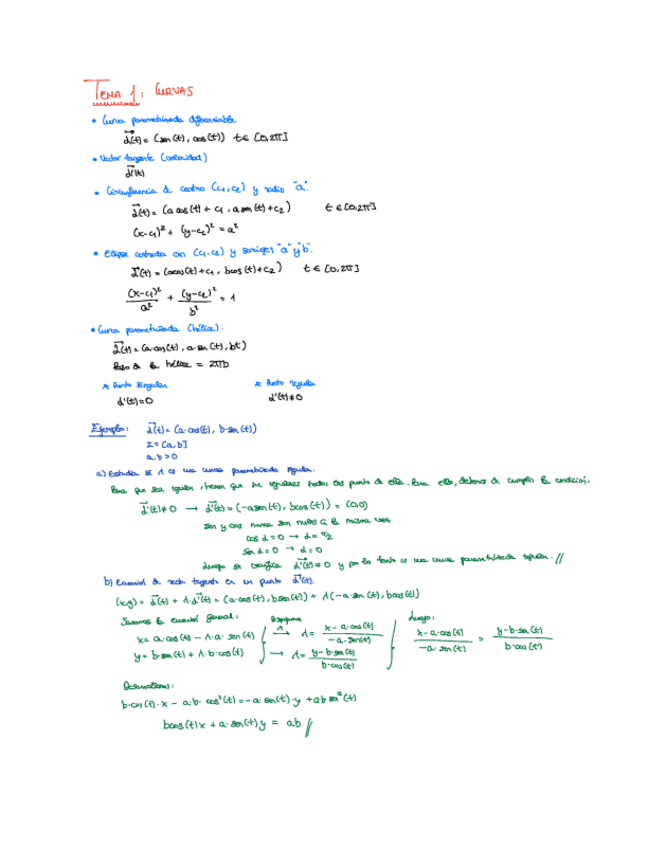 TEMA 1: CURVAS
• Curva parametrizada diferenciable
α(t) = (sen(t), cos(t)) t ∈ [0, 2π]
• Vector tangente (velocidad)
α'(t)
• Circunferencia de centro (c₁, c₂) y radio "a".
α(t) = (a cos(t) + c₁, a sen(t) + c₂) t ∈ [0, 2π]
(x-c₁)² + (y-c₂)² = a²
• Elipse centrada en (c₁, c₂) y semiejes "a" y "b".
α(t) = (a cos(t) + c₁, b cos(t) + c₂) t ∈ [0, 2π]
(x-c₁)²/a² + (y-c₂)²/b² = 1
• Curva parametrizada (hélice).
α(t) = (a·cos(t), a·sen(t), bt)
Paso de la hélice = 2πb
* Punto singular * Punto regular
α'(t) = 0 α'(t) ≠ 0
Ejemplo: α(t) = (a·cos(t), b·sen(t))
I = [a, b]
a, b > 0
a) Estudia si α es una curva parametrizada regular.
Para que sea regular, tienen que ser regulares todos los puntos de ella. Para ello, debemos de cumplir la condición,
α'(t) ≠ 0 → α'(t) = (-a sen(t), b cos(t)) = (0,0)
sen y cos nunca son nulos a la misma vez
cos α = 0 → α = π/2
sen α = 0 → α = 0
Luego se verifica α'(t) ≠ 0 y por lo tanto es una curva parametrizada regular. //
b) Ecuación de recta tangente en un punto α(t).
(x,y) = α(t) + λ·α'(t) = (a·cos(t), b sen(t)) + λ(-a·sen(t), b cos(t))
Sacamos la ecuación general: Despejamos λ Luego:
x = a·cos(t) - λ·a·sen(t) → λ = (x - a·cos(t))/(-a·sen(t)) (x - a·cos(t))/(-a·sen(t)) = (y - b·sen(t))/(b·cos(t))
y = b·sen(t) + λ·b·cos(t) → λ = (y - b·sen(t))/(b·cos(t))
Desarrollamos:
b·cos(t)·x - a·b·cos²(t) = -a·sen(t)·y + a·b sen²(t)
b cos(t) x + a·sen(t) y = ab //